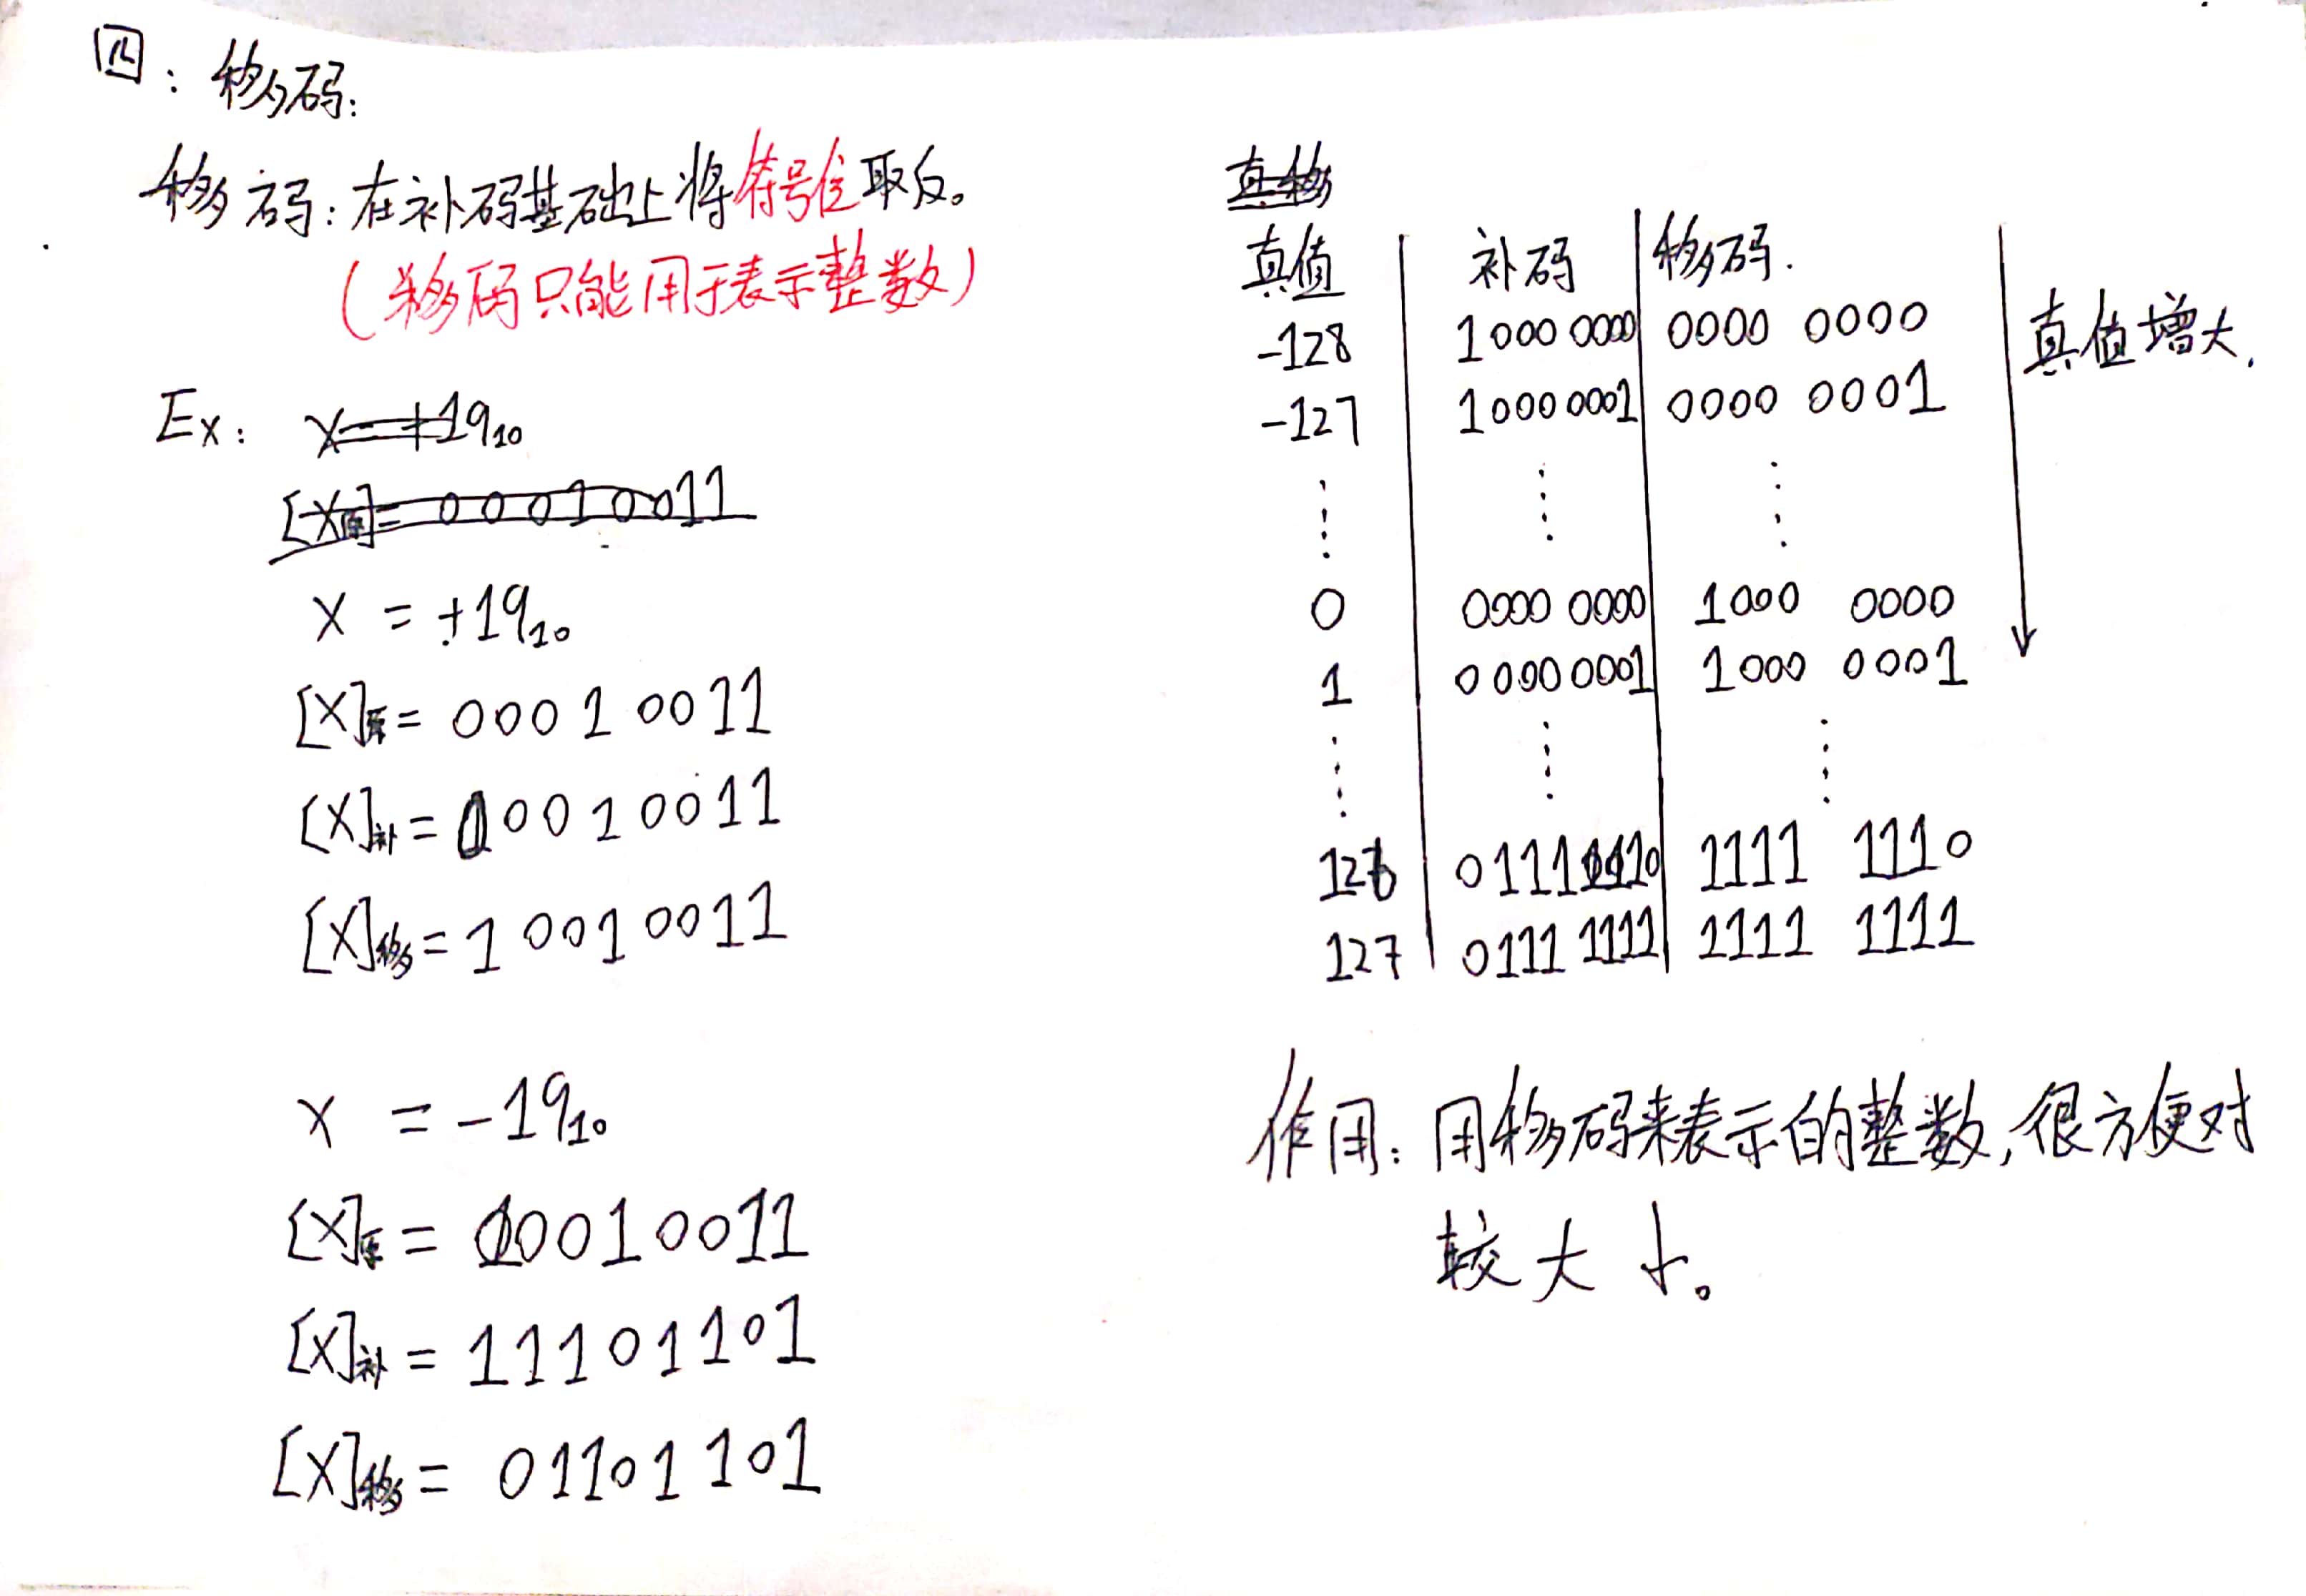 四:移码:
移码:在补码基础上将符号位取反。
(移码只能用于表示整数)
Ex: X=+19₁₀
[X]原=00010011
X = +19₁₀
[X]原= 0001 0011
[X]补= 0001 0011
[X]移= 1001 0011
X = -19₁₀
[X]原= 10010011
[X]补= 11101101
[X]移= 01101101
真移
真值 补码 移码.
-128 1000 0000 0000 0000
-127 1000 0001 0000 0001
⋮ ⋮ ⋮
0 0000 0000 1000 0000
1 0000 0001 1000 0001
⋮ ⋮ ⋮
126 0111 1110 1111 1110
127 0111 1111 1111 1111
真值增大.
作用: 用移码来表示的整数,很方便对
较大小。